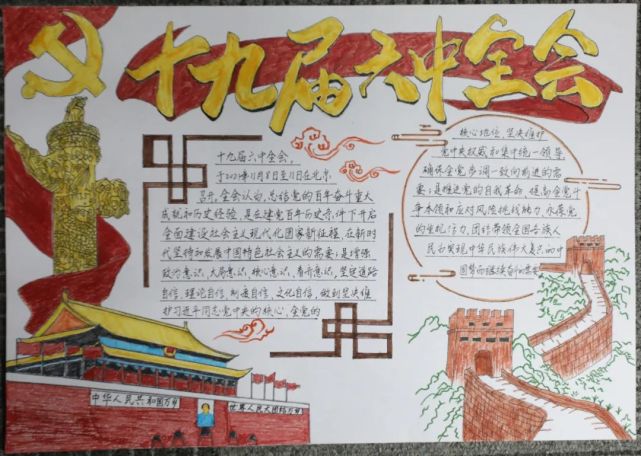 十九届六中全会
十九届六中全会,
于2021年11月8日至11日在北京
召开,全会认为,总结党的百年奋斗重大
成就和历史经验,是在建党百年历史条件下开启
全面建设社会主义现代化国家新征程、在新时
代坚持和发展中国特色社会主义的需要;是增强
政治意识、大局意识、核心意识、看齐意识,坚定道路
自信、理论自信、制度自信、文化自信,做到坚决维
护习近平同志党中央的核心、全党的
核心地位,坚决维护
党中央权威和集中统一领导,
确保全党步调一致向前进的需
要;是推进党的自我革命、提高全党斗
争本领和应对风险挑战能力、永葆党
的生机活力、团结带领全国各族人
民为实现中华民族伟大复兴的中
国梦而继续奋斗的需要
中华人民共和国万岁
世界人民大团结万岁